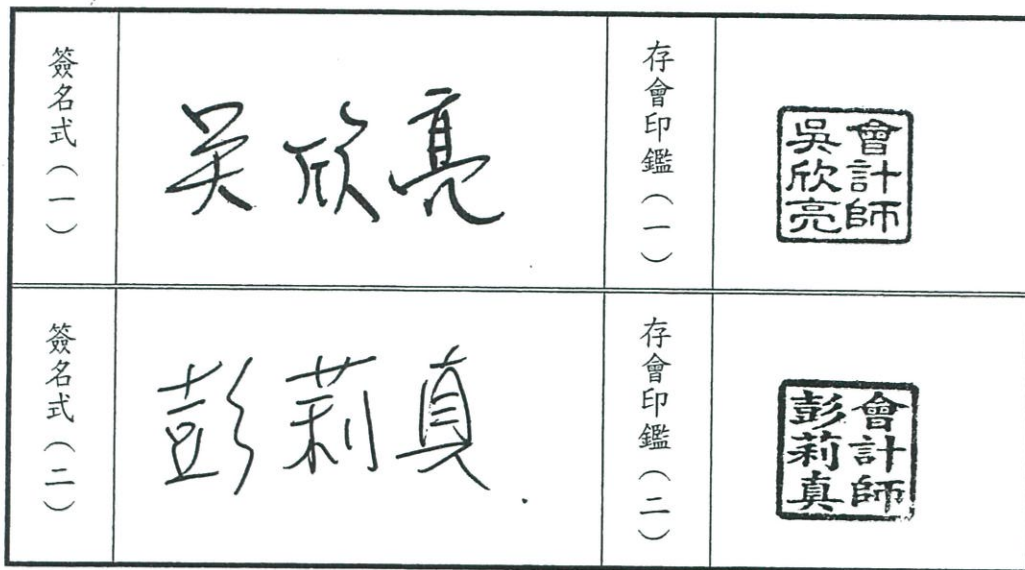 簽名式（一）
吳欣亮
存會印鑑（一）
會計師
吳欣亮
簽名式（二）
彭莉真
存會印鑑（二）
會計師
彭莉真